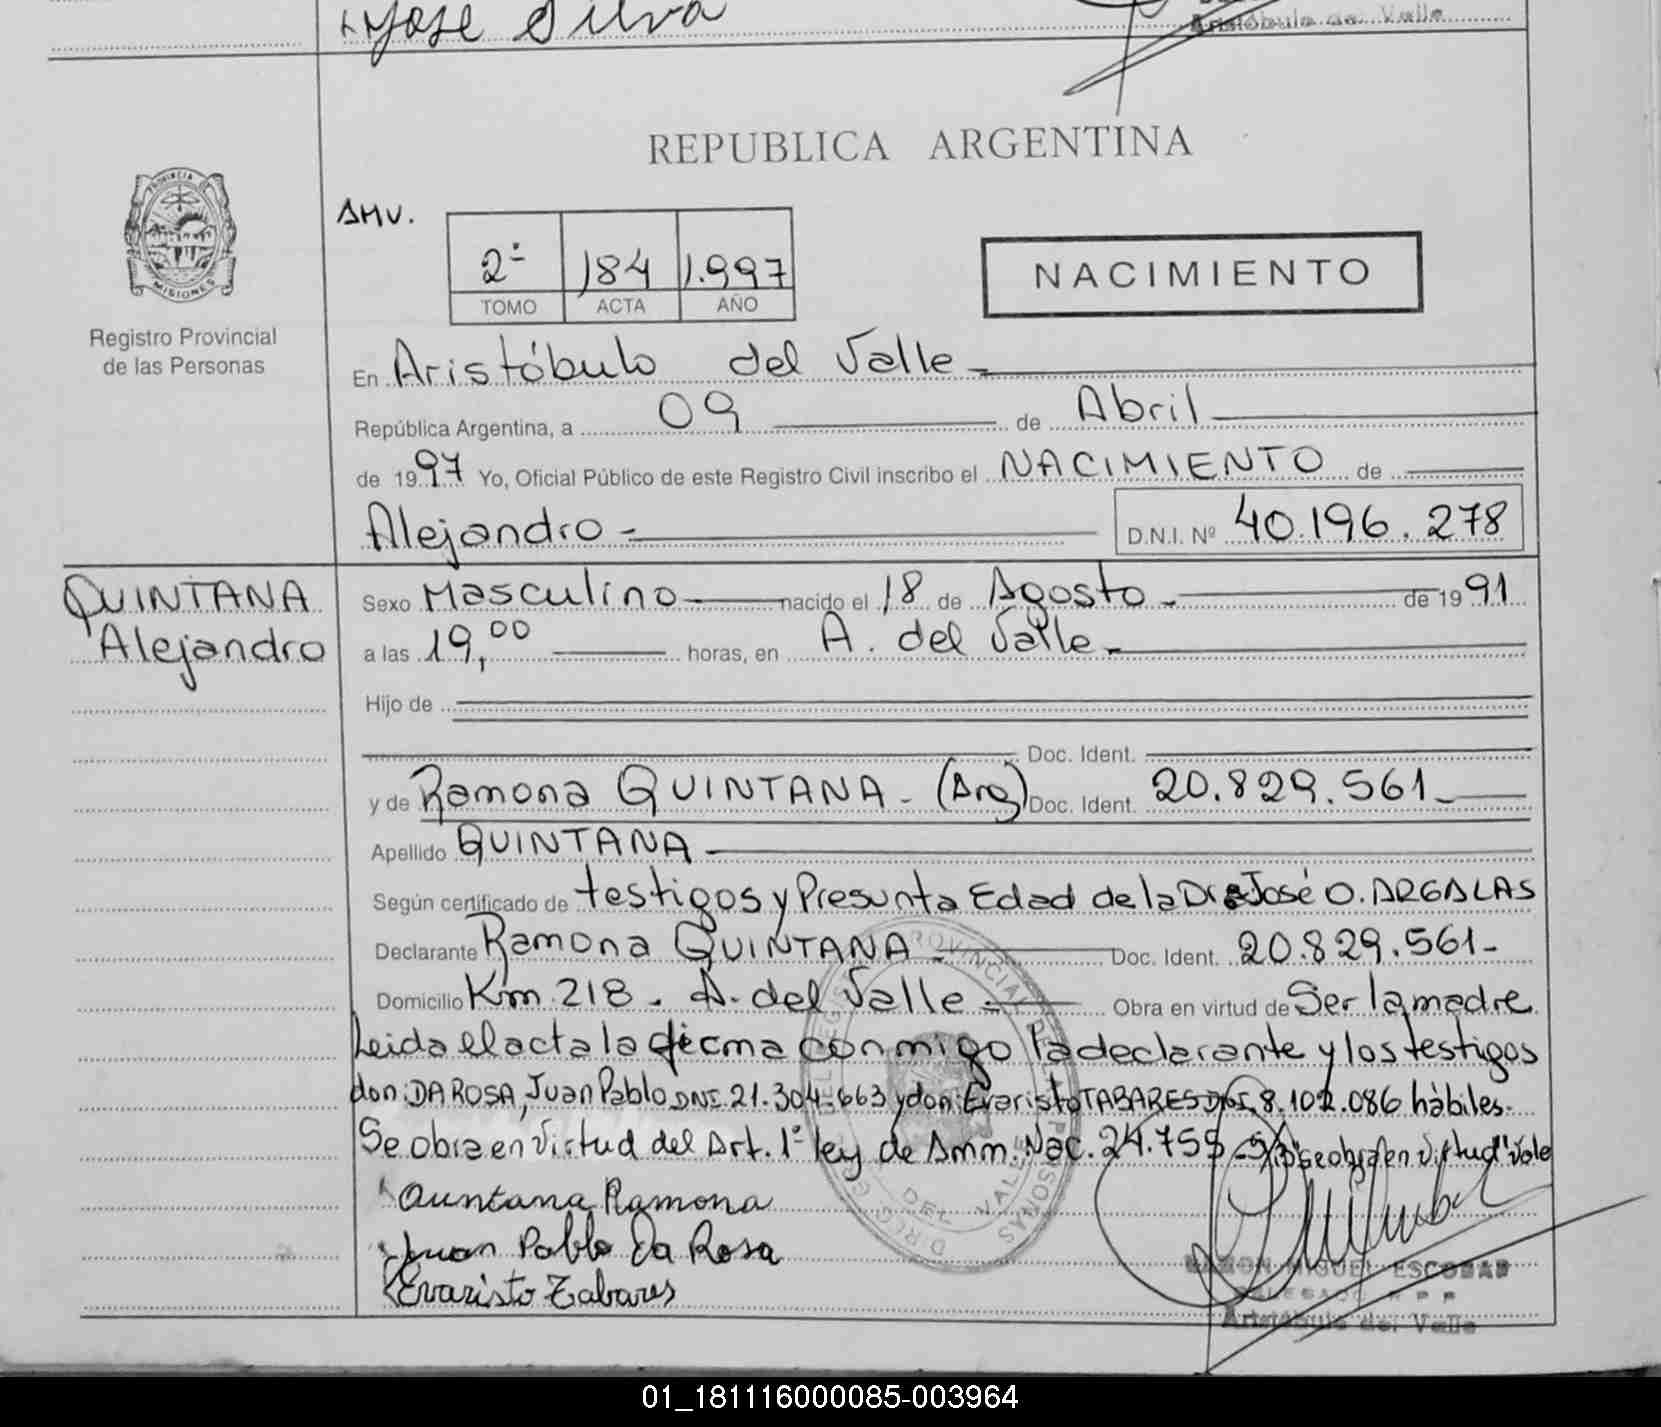 Jose Silva
Aristóbulo del Valle
REPUBLICA ARGENTINA
PROVINCIA DE
MISIONES
Registro Provincial
de las Personas
AMV.
2º 184 1.997
TOMO ACTA AÑO
NACIMIENTO
En Aristóbulo del Valle
República Argentina, a 09 de Abril
de 1997 Yo, Oficial Público de este Registro Civil inscribo el NACIMIENTO de
Alejandro
D.N.I. Nº 40.196.278
QUINTANA
Alejandro
Sexo Masculino nacido el 18 de Agosto de 1991
a las 19,00 horas, en A. del Valle
Hijo de
Doc. Ident.
y de Ramona QUINTANA - (Arg) Doc. Ident. 20.829.561
Apellido QUINTANA
Según certificado de testigos y Presunta Edad de la Dr José O. ARGALAS
Declarante Ramona QUINTANA - Doc. Ident. 20.829.561-
Domicilio Km 218 - A. del Valle - Obra en virtud de Ser la madre
Leida el acta la firma conmigo la declarante y los testigos
don: DA ROSA, Juan Pablo DNI. 21.304.663 y don: Evaristo TABARES DNI. 8.102.086 hábiles.
Se obra en Virtud del Art. 1º ley de Amn. Nac. 24.755 - S/R "se obra en virtud" Vale
Quintana Ramona
Juan Pablo Da Rosa
Evaristo Tabares
RAMON MIGUEL ESCOBAR
DELEGADO R P P
Aristóbulo del Valle
01_181116000085-003964